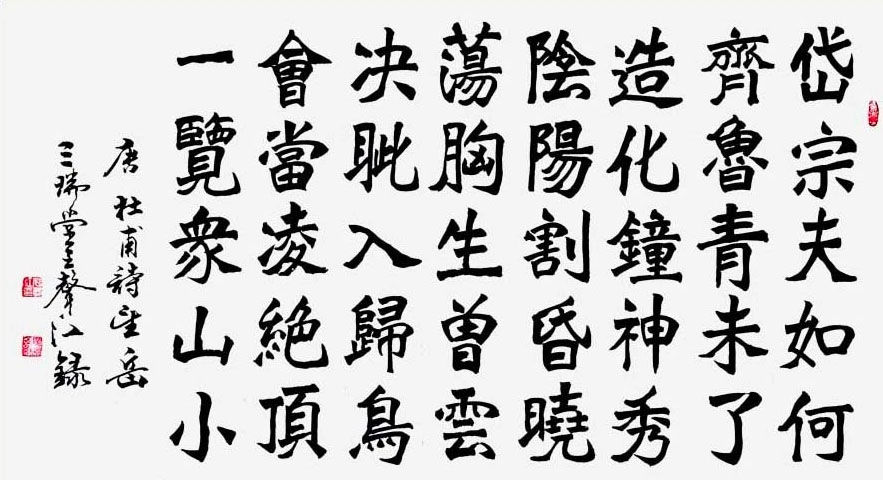 岱宗夫如何
齊魯青未了
造化鐘神秀
陰陽割昏曉
蕩胸生曽雲
决眦入歸鳥
會當凌絶頂
一覽衆山小
唐杜甫詩望岳
三瑞堂主聲江録